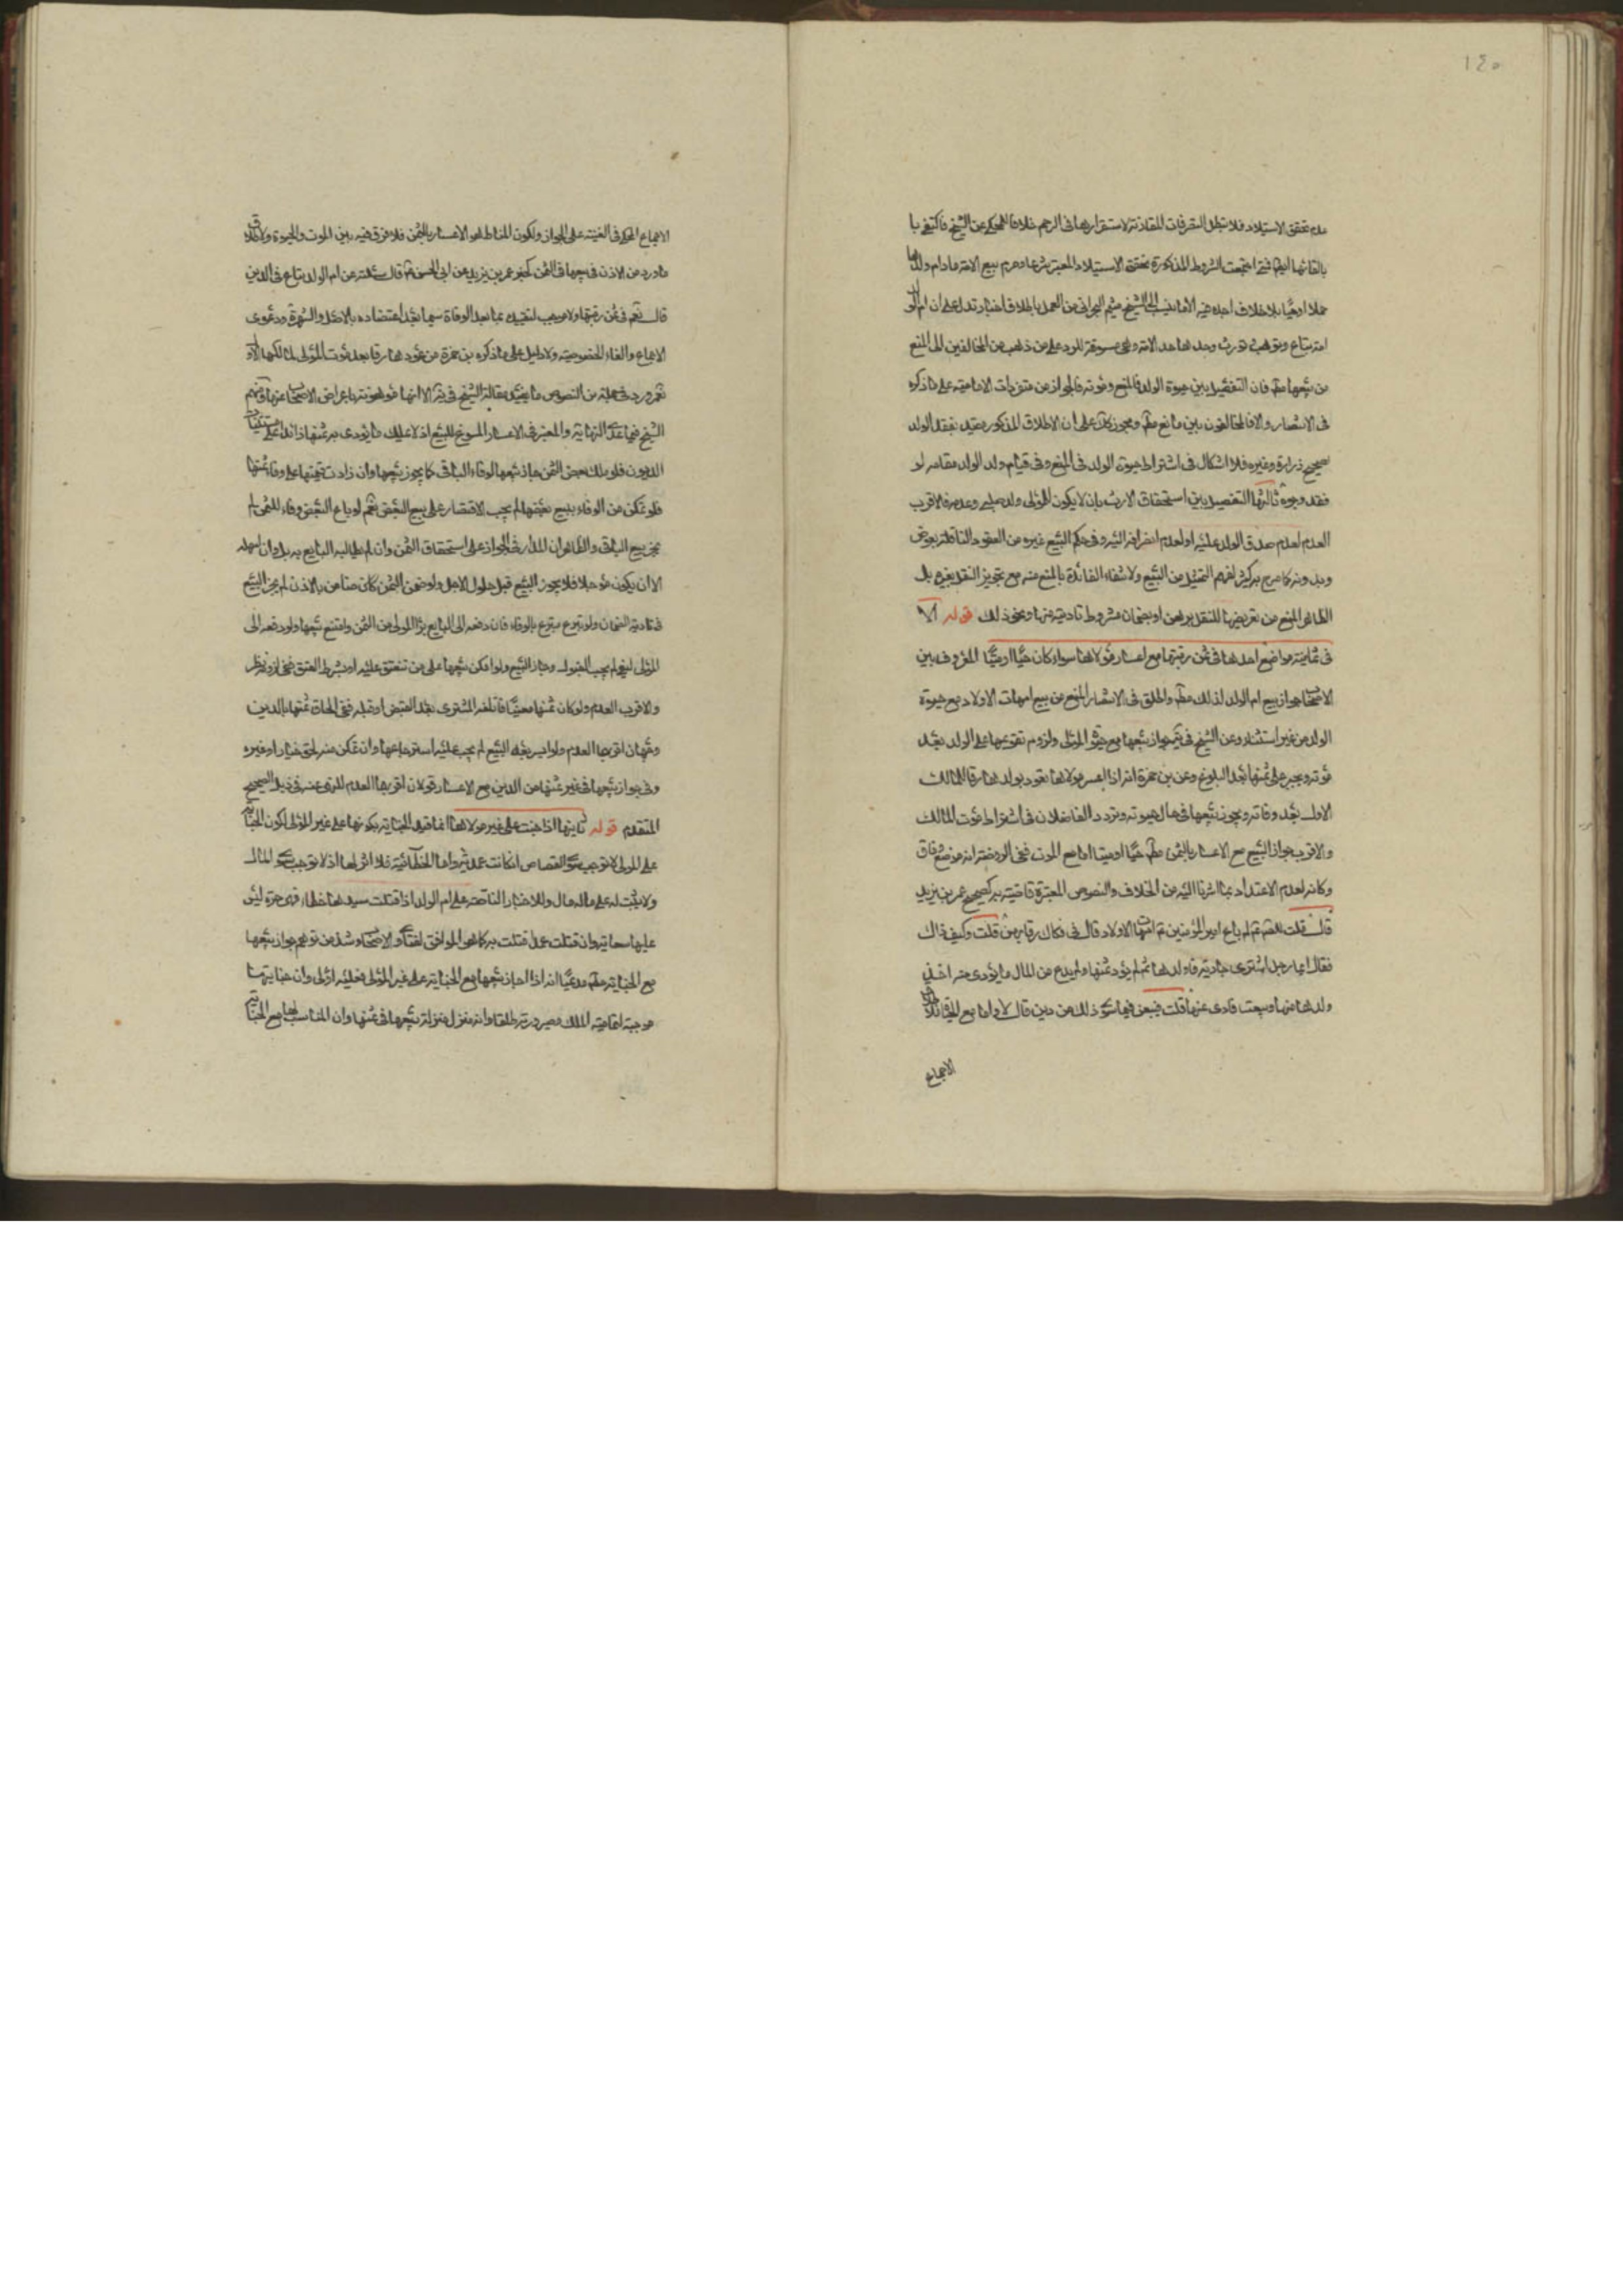 ١٤٥
عدم تحقق الاستيلاد فلا تبطل التصرفات المقارنة لاستقرارها فى الرحم خلافا للمحكى عن الشيخ فاكتفى با
بالقائها ايضا فمتى اجتمعت الشروط المذكورة تحقق الاستيلاد المعتبر شرعا وحرم بيع الامة مادام ولدها
حملا او حيا بلا خلاف اجده فيه الا ما ينسب الى الشيخ ميثم البحرانى من العمل باطلاق اخبار تدل على ان ام الولد
امة تباع وتوهب وتورث وحدها حد الامة وهى مسوقة للرد على من ذهب من المخالفين الى المنع
من بيعها مطم فان التفصيل بين حيوة الولد فالمنع وموته فالجواز من متفردات الامامية على ما ذكره
فى الانتصار والا فالمخالفون بين مانع مطم ومجوز كك على ان الاطلاق المذكور مقيد بفقد الولد
صحيح زرارة وغيره فلا اشكال فى اشتراط حيوة الولد فى المنع وفى قيام ولد الولد مقامه لو
فقد وجوه ثالثها التفصيل بين استحقاق الارث بان لا يكون للمولى ولد صلبى وعدمه فالاقرب
العدم لعدم صدق الولد عليه او لعدم انصرافه اليه وفى حكم البيع غيره من العقود الناقلة بعوض
وبدونه كما صرح به كثير لفهم التمثيل من البيع ولانتفاء الفائدة بالمنع منه مع تجويز النقل بغيره بل
الظاهر المنع من تعريضها للنقل برهن او بضمان مشروط تاديته منها ونحو ذلك قوله الا
فى ثمانية مواضع احدها فى ثمن رقبتها مع اعسار مولاها سواء كان حيا او ميتا المعروف بين
الاصحاب جواز بيع ام الولد لذلك مطم واطلق فى الانتصار المنع من بيع امهات الاولاد مع حيوة
الولد من غير استثناء وعن الشيخ فى يه جواز بيعها مع موت المولى ولزوم تقويمها على الولد بعد
موته ويجبر على ثمنها بعد البلوغ وعن بن حمزة انه اذا اعسر مولاها تعود بولدها رقا للمالك
الاول بعد وفاته ويجوز بيعها فى حال حيوته وتردد الفاضلان فى اشتراط موت المالك
والاقرب جواز البيع مع الاعسار بالثمن مطم حيا او ميتا اما مع الموت ففى الروضة انه موضع وفاق
وكانه لعدم الاعتداد بما اشرنا اليه من الخلاف والنصوص المعتبرة قاضية به كصحيح عمر بن يزيد
قال قلت للصم لم باع امير المؤمنين ع امهات الاولاد قال فى فكاك رقابهن قلت وكيف ذاك
فقال ايما رجل اشترى جارية فاولدها ثم لم يؤد ثمنها ولم يدع من المال ما يؤدى عنه اخذ
ولدها منها وبيعت فادى عنها قلت فيبعن فيما سوى ذلك من دين قال لا واما مع الحيوة فلان
الاجماع
الاجماع المحكى فى الغنية على الجواز ولكون المناط هو الاعسار بالثمن فلا فرق فيه بين الموت والحيوة ولاطلاق
ما ورد من الاذن فى بيعها فى الثمن كخبر عمر بن يزيد عن ابى الحسن ع قال سئلته عن ام الولد تباع فى الدين
قال نعم فى ثمن رقبتها ولا موجب لتقييده بما بعد الوفاة سيما بعد اعتضاده بالاصل والشهرة ودعوى
الاجماع والغاء الخصوصية ولا دليل على ما ذكره بن حمزة من عودها رقا بعد موت المولى لمالكها الاو
نعم ورد فى جملة من النصوص ما يؤيد مقالة الشيخ فى يه الا انها موهونة باعراض الاصحاب عنها ومنهم
الشيخ فيما عدا النهاية والمعتبر فى الاعسار المسوغ للبيع اذ لا عليك ما يؤدى به ثمنها زائدا على مستثنيات
الديون فلو ملك بعض الثمن جاز بيعها لوفاء الباقى كما يجوز بيعها وان زادت قيمتها على وفاء ثمنها
فلو تمكن من الوفاء ببيع بعضها لم يجب الاقتصار على بيع البعض نعم لو باع البعض وفاء للثمن لم
يجز بيع الباقى والظاهر ان المدار فى الجواز على استحقاق الثمن وان لم يطالبه البايع به بل وان امهله
الا ان يكون مؤجلا فلا يجوز البيع قبل حلول الاجل ولو ضمن الثمن كان ضامن بالاذن لم يجز البيع
فى تادية الضمان ولو تبرع متبرع بالوفاء فان دفعه الى البايع برأ المولى من الثمن وامتنع بيعها ولو دفعه الى
المولى ليفى لم يجب القبول وجاز البيع ولو امكن بيعها على من تنعتق عليه او بشرط العتق ففى لزومه نظر
والاقرب العدم ولو كان ثمنها معينا فاتلفه المشترى بعد القبض او قبله ففى الحاق ثمنها بالدين
وجهان اقربهما العدم ولو ايسر بعد البيع لم يجب عليه استرجاعها وان تمكن منه لحق خيار او غيره
وفى جواز بيعها فى غير ثمنها من الدين مع الاعسار قولان اقربهما العدم للنهى عنه فى ذيل الصحيح
المتقدم قوله ثانيها اذا جنت على غير مولاها انما قيد الجناية بكونها على غير المولى لكون الجناية
على المولى لا توجب سوى القصاص ان كانت عمدية واما الخطائية فلا اثر لها اذ لا توجب سوى المال
ولا يثبت له على ماله مال وللاخبار الناصة على ام الولد اذا قتلت سيدها خطاء فهى حرة ليس
عليها سعاية وان قتلت عمدا قتلت به كما هو الموافق لفتاوى الاصحاب وشذ من توهم جواز بيعها
مع الجناية مطم مدعيا انه اذا جاز بيعها مع الجناية على غير المولى فعليه اولى وان جنايتها
موجبة لتمامية الملك وصيرورته طلقا وانه منزل منزلة بيعها فى ثمنها وان المناسب لها مع الجناية